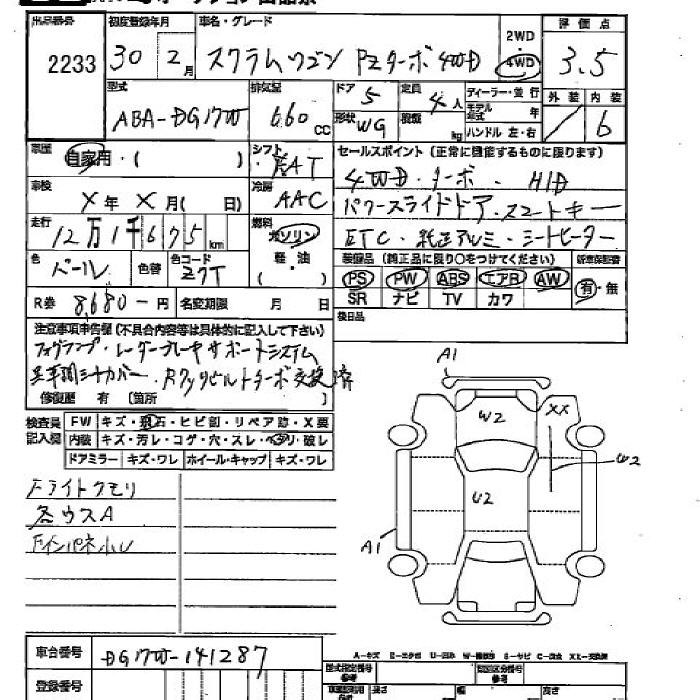 出品番号 初度登録年月 車名・グレード 2WD 評価点
2233 30 2月 スクラムワゴン PZターボ 4WD 4WD 3.5
型式 排気量 ドア 定員 ディーラー・並行 外装 内装
ABA-DG17W 660cc 5 4人 モデル年式 年 6
形状 WG 積載 kg ハンドル 左・右
車歴 自家用・( ) シフト FAT セールスポイント(正常に機能するものに限ります)
車検 X年X月( 日) 冷房 AAC 4WD・ターボ・HID
パワースライドドア・スマートキー
走行 12万1千675km 燃料 ガソリン ETC・純正アルミ・シートヒーター
軽・油
色 パール 色替 色コード Z7T 装備品(純正品に限り○をつけてください) 新車保証書
PS PW ABS エアB AW 有・無
SR ナビ TV カワ
R券 8,680-円 名変期限 月 日 後日品
注意事項申告欄(不具合内容等は具体的に記入して下さい)
フォグランプ・レーダーブレーキサポートシステム
交換済
修復歴 有 (箇所 )
検査員記入欄 FW キズ・飛石・ヒビ割・リペア跡・X要
内装 キズ・汚レ・コゲ・穴・スレ・ヘタリ・破レ
ドアミラー キズ・ワレ ホイール・キャップ キズ・ワレ
Fライトクモリ
各ウスA
A1
W2
XX
W2
U2
A1
車台番号 DG17W-141287
登録番号
A-キズ
型式指定番号 参考 類別区分番号 参考
長さ 幅 高さ